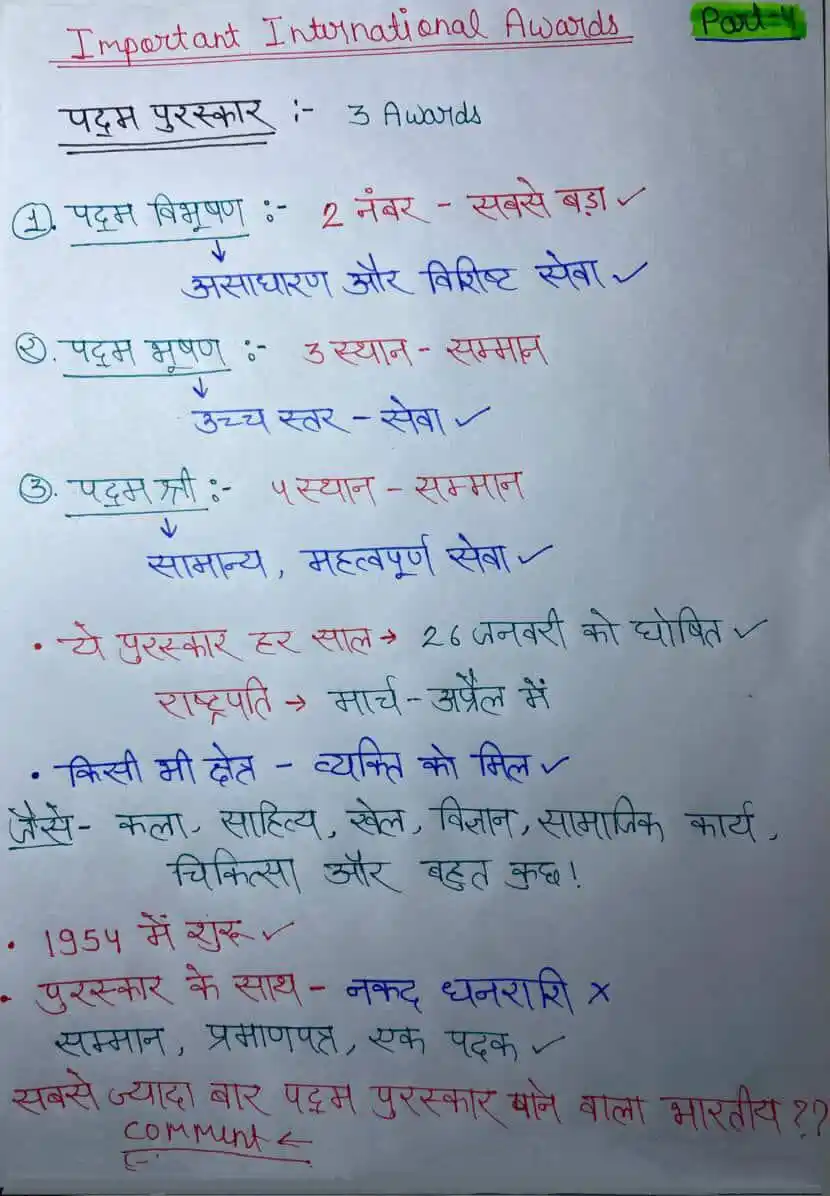 Important International Awards
Part-4
पद्म पुरस्कार :- 3 Awards
1. पद्म विभूषण :- 2 नंबर - सबसे बड़ा ✓
↓
असाधारण और विशिष्ट सेवा ✓
2. पद्म भूषण :- 3 स्थान - सम्मान
↓
उच्च स्तर - सेवा ✓
3. पद्म श्री :- 4 स्थान - सम्मान
↓
सामान्य, महत्वपूर्ण सेवा ✓
• ये पुरस्कार हर साल → 26 जनवरी को घोषित ✓
राष्ट्रपति → मार्च - अप्रैल में
• किसी भी क्षेत्र - व्यक्ति को मिल ✓
जैसे - कला, साहित्य, खेल, विज्ञान, सामाजिक कार्य,
चिकित्सा और बहुत कुछ!
• 1954 में शुरू ✓
• पुरस्कार के साथ - नकद धनराशि ×
सम्मान, प्रमाणपत्र, एक पदक ✓
सबसे ज्यादा बार पद्म पुरस्कार पाने वाला भारतीय ??
comment ←